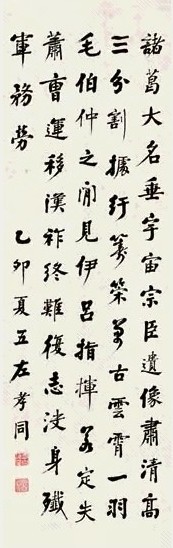 諸葛大名垂宇宙宗臣遺像肅清高
三分割據紆籌策萬古雲霄一羽
毛伯仲之間見伊呂指揮若定失
蕭曹運移漢祚終難復志決身殲
軍務勞
乙卯夏五左孝同